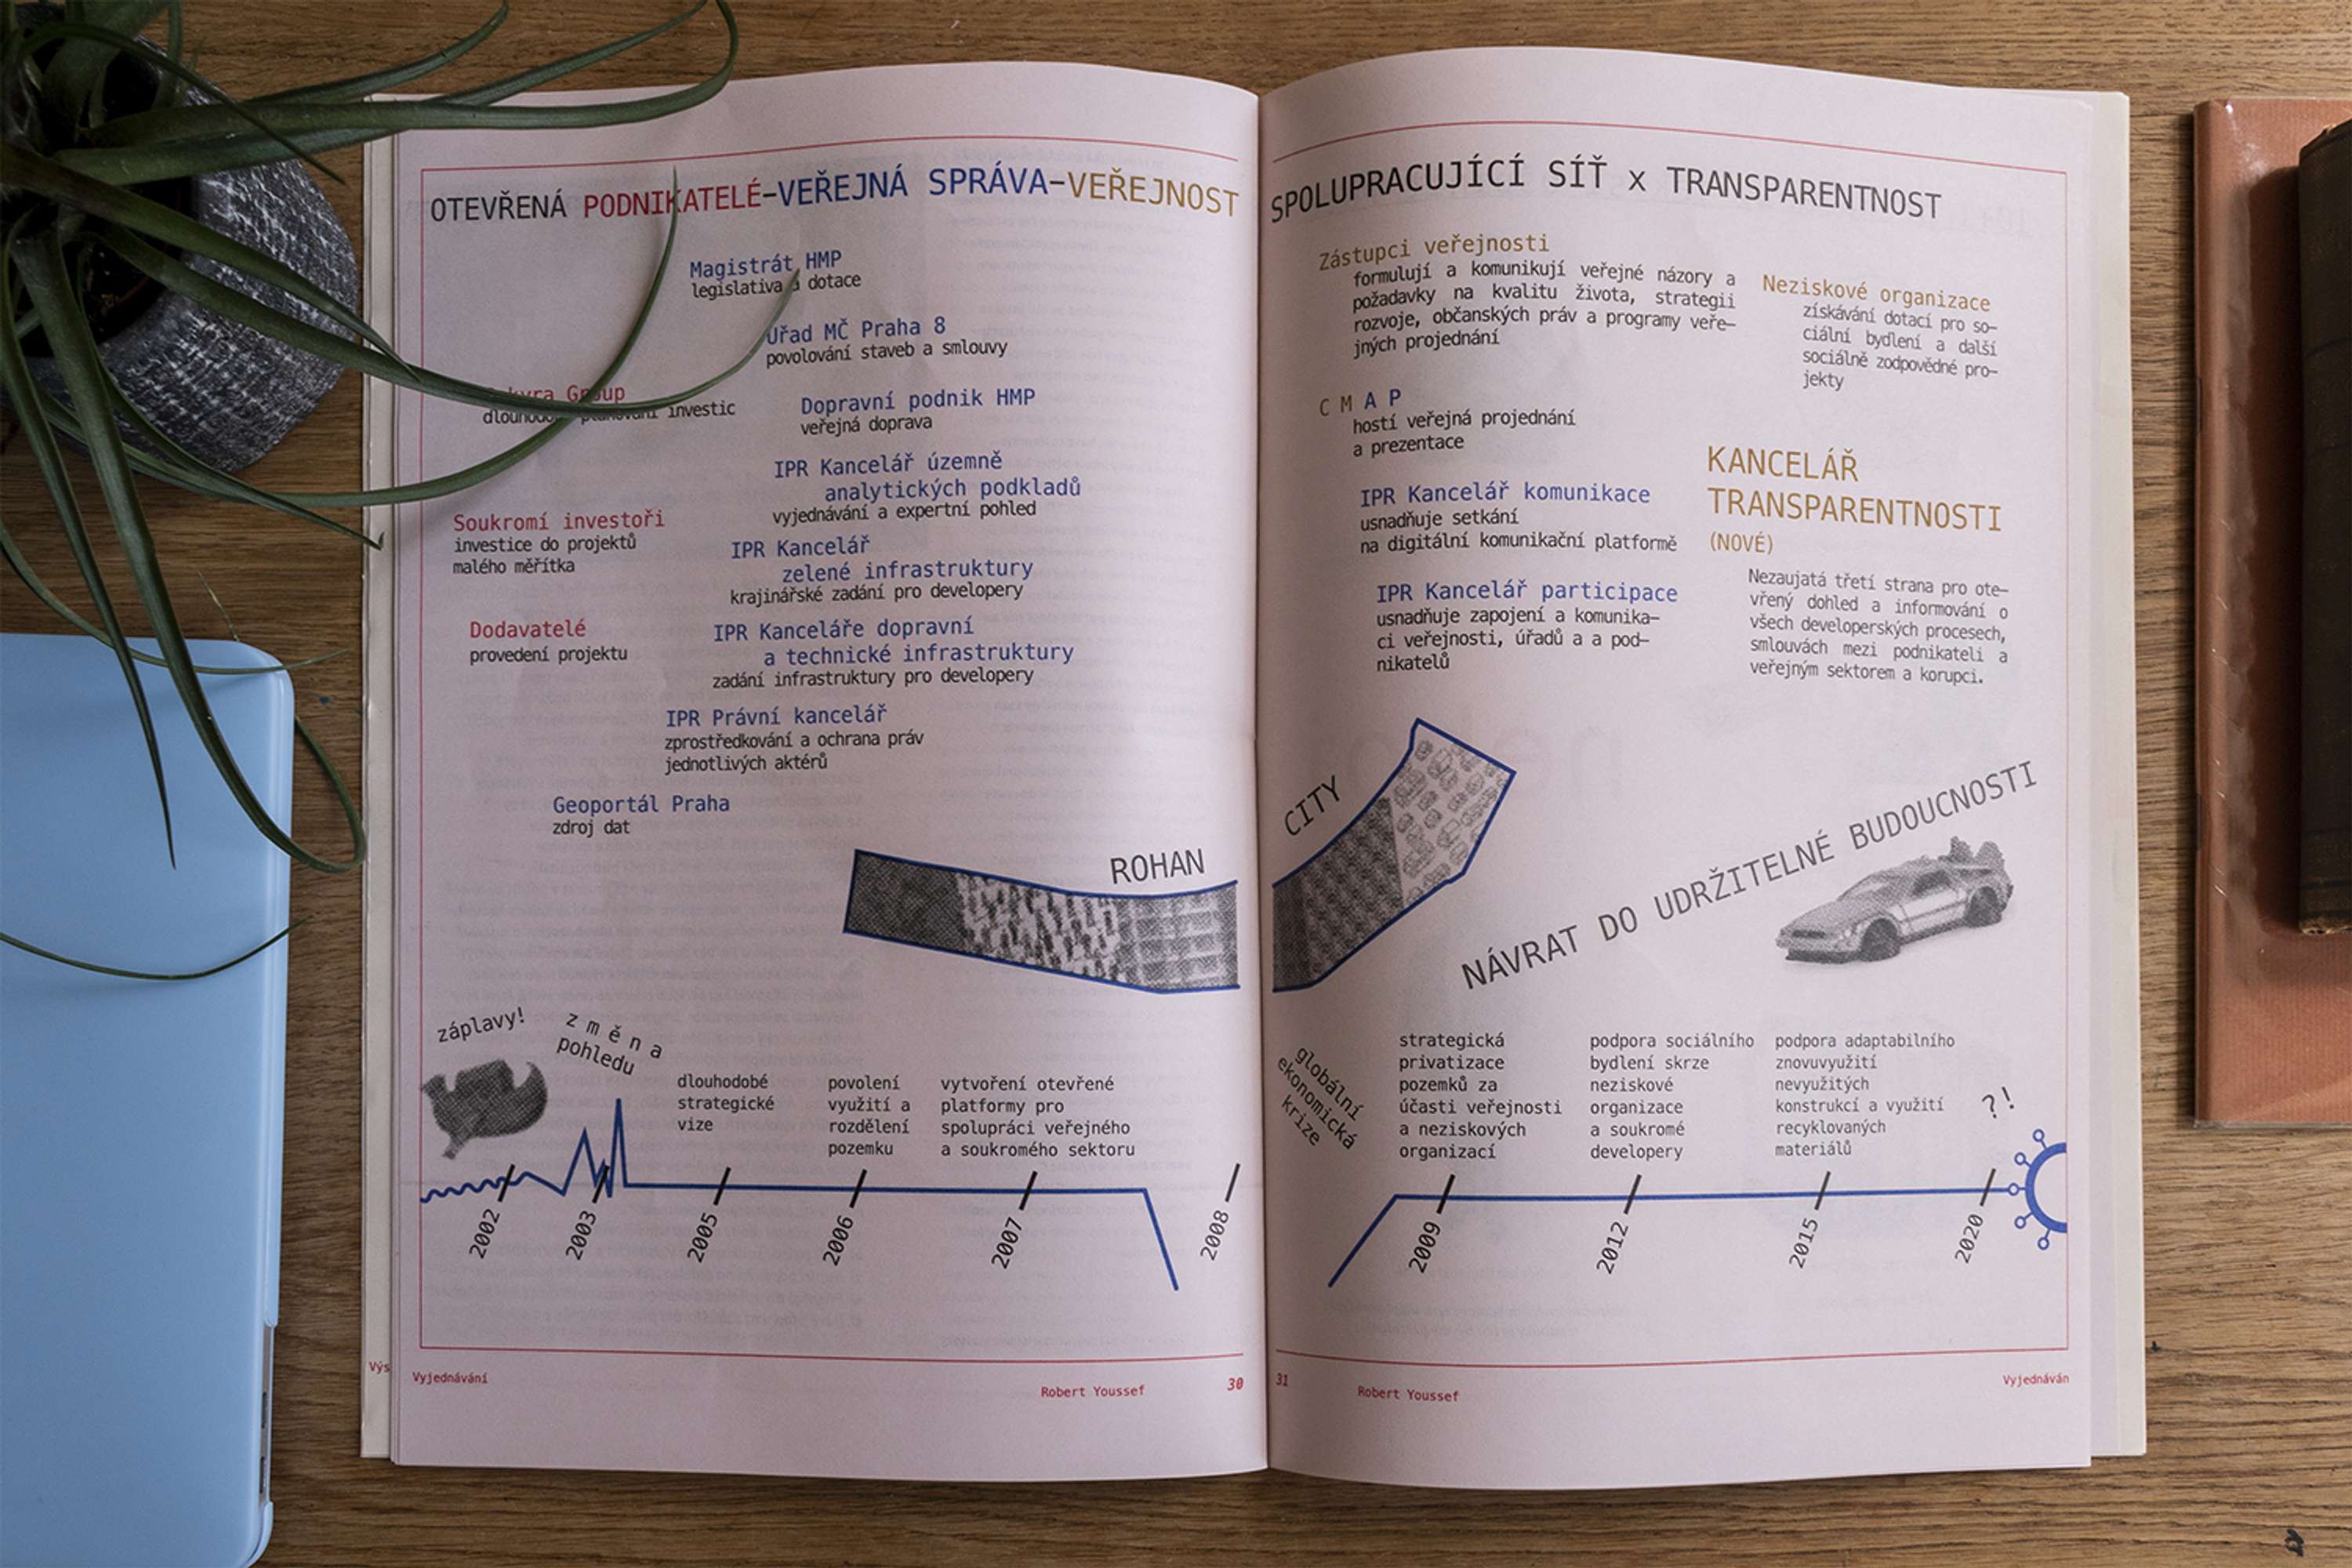 OTEVŘENÁ PODNIKATELÉ–VEŘEJNÁ SPRÁVA–VEŘEJNOST
Magistrát HMP
legislativa a dotace
Úřad MČ Praha 8
povolování staveb a smlouvy
Group
investic
Dopravní podnik HMP
veřejná doprava
IPR Kancelář územně
analytických podkladů
vyjednávání a expertní pohled
Soukromí investoři
investice do projektů
malého měřítka
IPR Kancelář
zelené infrastruktury
krajinářské zadání pro developery
Dodavatelé
provedení projektu
IPR Kanceláře dopravní
a technické infrastruktury
zadání infrastruktury pro developery
IPR Právní kancelář
zprostředkování a ochrana práv
jednotlivých aktérů
Geoportál Praha
zdroj dat
ROHAN
záplavy!
změna
pohledu
dlouhodobé
strategické
vize
povolení
využití a
rozdělení
pozemku
vytvoření otevřené
platformy pro
spolupráci veřejného
a soukromého sektoru
2002
2003
2005
2006
2007
2008
Výs
Vyjednávání
Robert Youssef
30
SPOLUPRACUJÍCÍ SÍŤ x TRANSPARENTNOST
Zástupci veřejnosti
formulují a komunikují veřejné názory a
požadavky na kvalitu života, strategii
rozvoje, občanských práv a programy veře–
jných projednání
Neziskové organizace
získávání dotací pro so–
ciální bydlení a další
sociálně zodpovědné pro–
jekty
C M A P
hostí veřejná projednání
a prezentace
IPR Kancelář komunikace
usnadňuje setkání
na digitální komunikační platformě
IPR Kancelář participace
usnadňuje zapojení a komunika–
ci veřejnosti, úřadů a a pod–
nikatelů
KANCELÁŘ
TRANSPARENTNOSTI
(NOVÉ)
Nezaujatá třetí strana pro ote–
vřený dohled a informování o
všech developerských procesech,
smlouvách mezi podnikateli a
veřejným sektorem a korupci.
CITY
NÁVRAT DO UDRŽITELNÉ BUDOUCNOSTI
globální
ekonomická
krize
strategická
privatizace
pozemků za
účasti veřejnosti
a neziskových
organizací
podpora sociálního
bydlení skrze
neziskové
organizace
a soukromé
developery
podpora adaptabilního
znovuvyužití
nevyužitých
konstrukcí a využití
recyklovaných
materiálů
?!
2009
2012
2015
2020
31
Robert Youssef
Vyjednáván